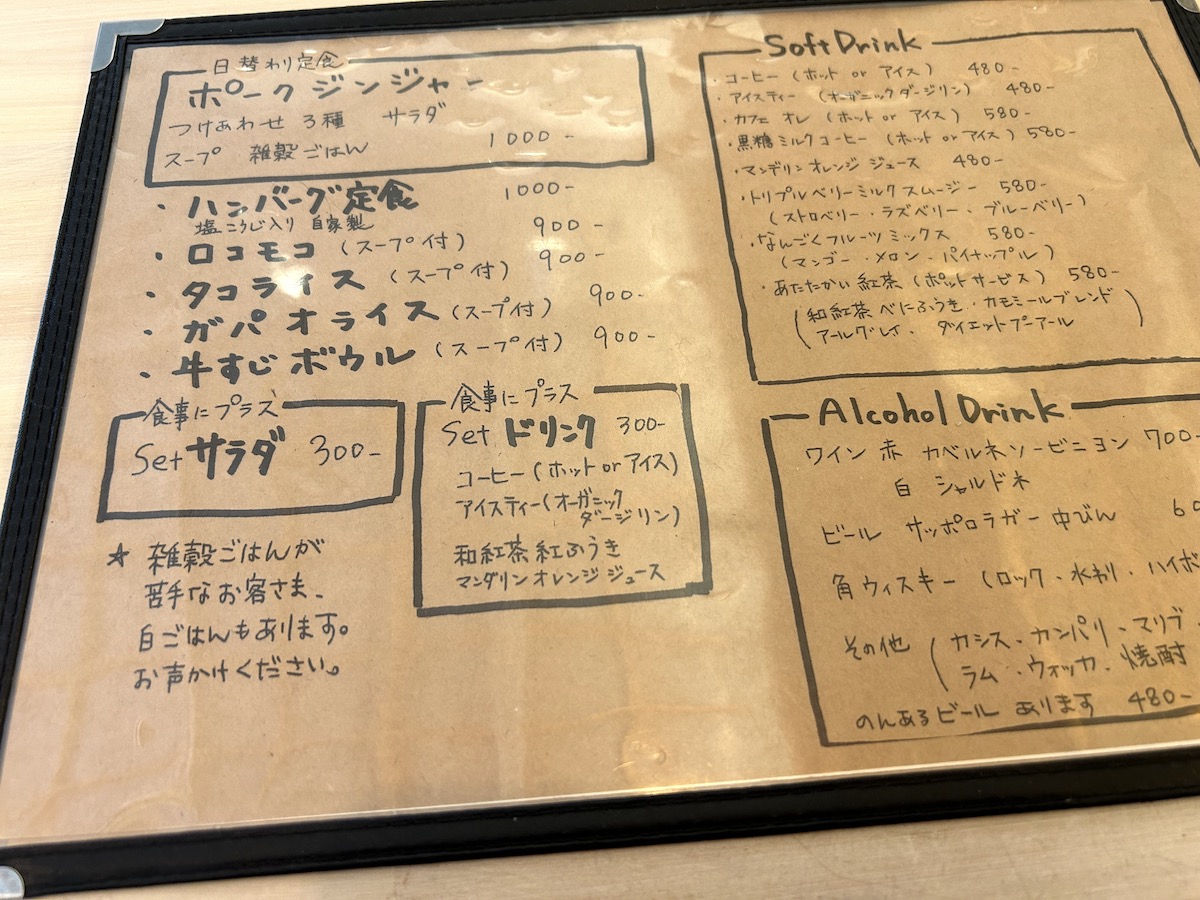 日替わり定食
ポークジンジャー
つけあわせ 3種 サラダ
スープ 雑穀ごはん 1000-
・ハンバーグ定食 1000-
塩こうじ入り 自家製
・ロコモコ (スープ付) 900-
・タコライス (スープ付) 900-
・ガパオライス (スープ付) 900-
・牛すじボウル (スープ付) 900-
食事にプラス
Set サラダ 300-
食事にプラス
Set ドリンク 300-
コーヒー (ホット or アイス)
アイスティー (オーガニック
ダージリン)
和紅茶 紅ふうき
マンダリン オレンジ ジュース
☆ 雑穀ごはんが
苦手なお客さま、
白ごはんもあります。
お声かけください。
Soft Drink
・コーヒー (ホット or アイス) 480-
・アイスティー (オーガニックダージリン) 480-
・カフェ オレ (ホット or アイス) 580-
・黒糖ミルクコーヒー (ホット or アイス) 580-
・マンデリン オレンジ ジュース 480-
・トリプルベリーミルクスムージー 580-
(ストロベリー・ラズベリー・ブルーベリー)
・なんごくフルーツミックス 580-
(マンゴー・メロン・パイナップル)
・あたたかい紅茶 (ポットサービス) 580-
(和紅茶べにふうき・カモミールブレンド
アールグレイ・ダイエットプーアール)
Alcohol Drink
ワイン 赤 カベルネソービニヨン 700-
白 シャルドネ
ビール サッポロラガー中びん
角ウィスキー (ロック・水わり・ハイボ
その他 (カシス・カンパリ・マリブ・
ラム・ウォッカ・焼酎
のんあるビール あります 480-